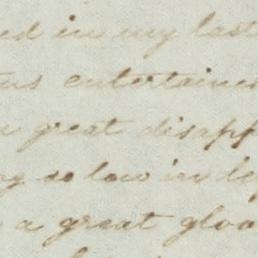 ed in my last
us entertained
a great disapp
ng so low in de
a great gloo